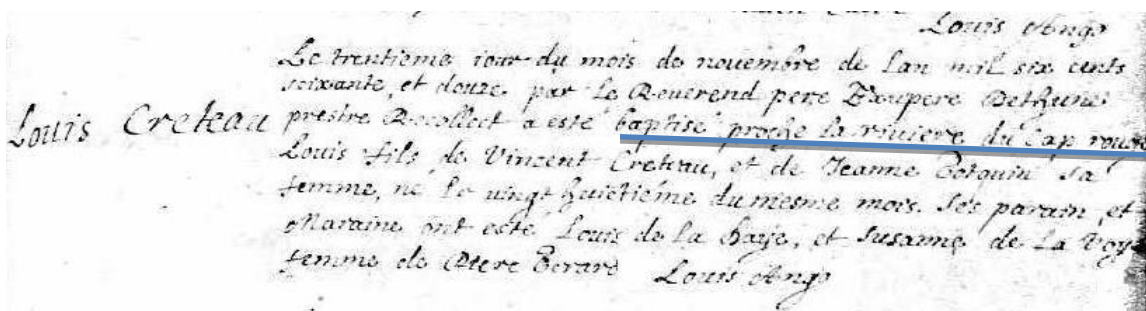 Louis Ango
Le trentieme iour du mois de novembre de Lan mil six cents
soixante, et douze par Le Reverend pere Exupere Dethune
Louis Creteau prestre Recollect a esté baptisé proche la riviere du Cap rouge
Louis fils de Vincent Creteau, et de Jeanne sa
femme, né le vingt huictiéme du mesme mois. Ses parain, et
Maraine ont esté Louis de la haije, et Susanne de La Voye
femme de Piere Louis Ango